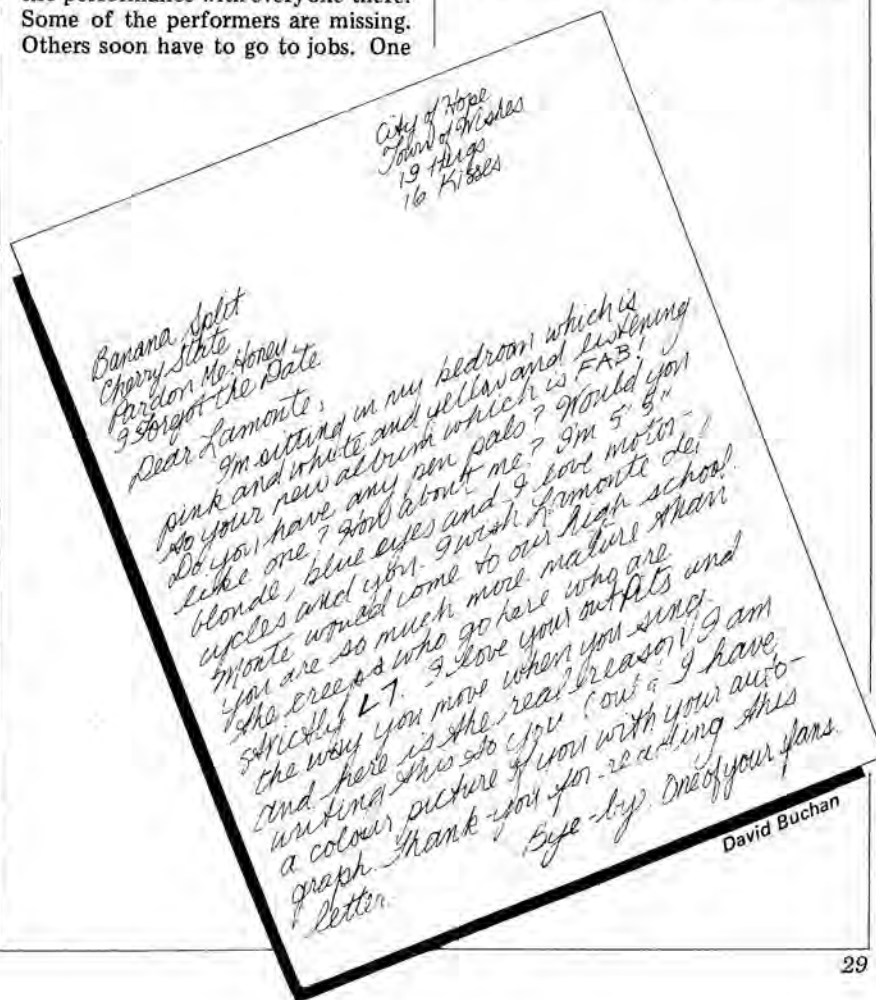 the performance with everyone there.
Some of the performers are missing.
Others soon have to go to jobs. One
City of Hope
Town of Wishes
19 Hugs
16 Kisses
Banana Split
Cherry State
Pardon Me Honey
I Forgot the Date
Dear Lamonte,
I'm sitting in my bedroom which is
pink and white and yellow and listening
to your new album which is FAB!
Do you have any pen pals? Would you
like one? How about me? I'm 5' 5"
blonde, blue eyes and I love motor-
cycles and you. I wish Lamonte del
Monte would come to our high school.
You are so much more mature than
the creeps who go here who are
strictly L7. I love your outfits and
the way you move when you sing
and here is the real reason I am
writing this to you. Could I have
a colour picture of you with your auto-
graph. Thank-you for reading this
letter.
Bye-by. One of your fans.
David Buchan
29